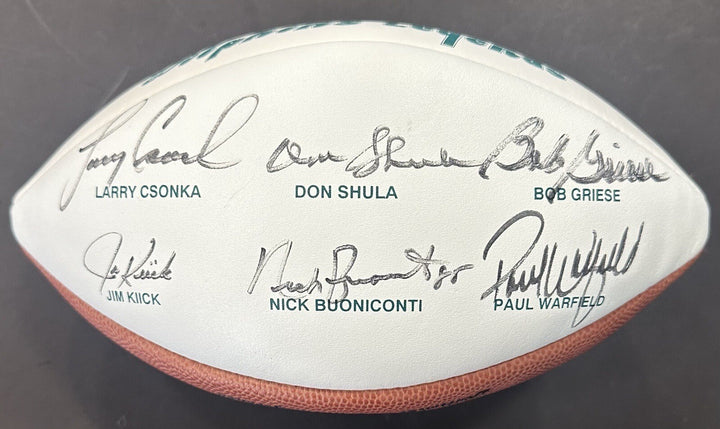 Larry Csonka Don Shula Bob Griese
LARRY CSONKA DON SHULA BOB GRIESE
Jim Kiick Nick Buoniconti 85 Paul Warfield
JIM KIICK NICK BUONICONTI PAUL WARFIELD